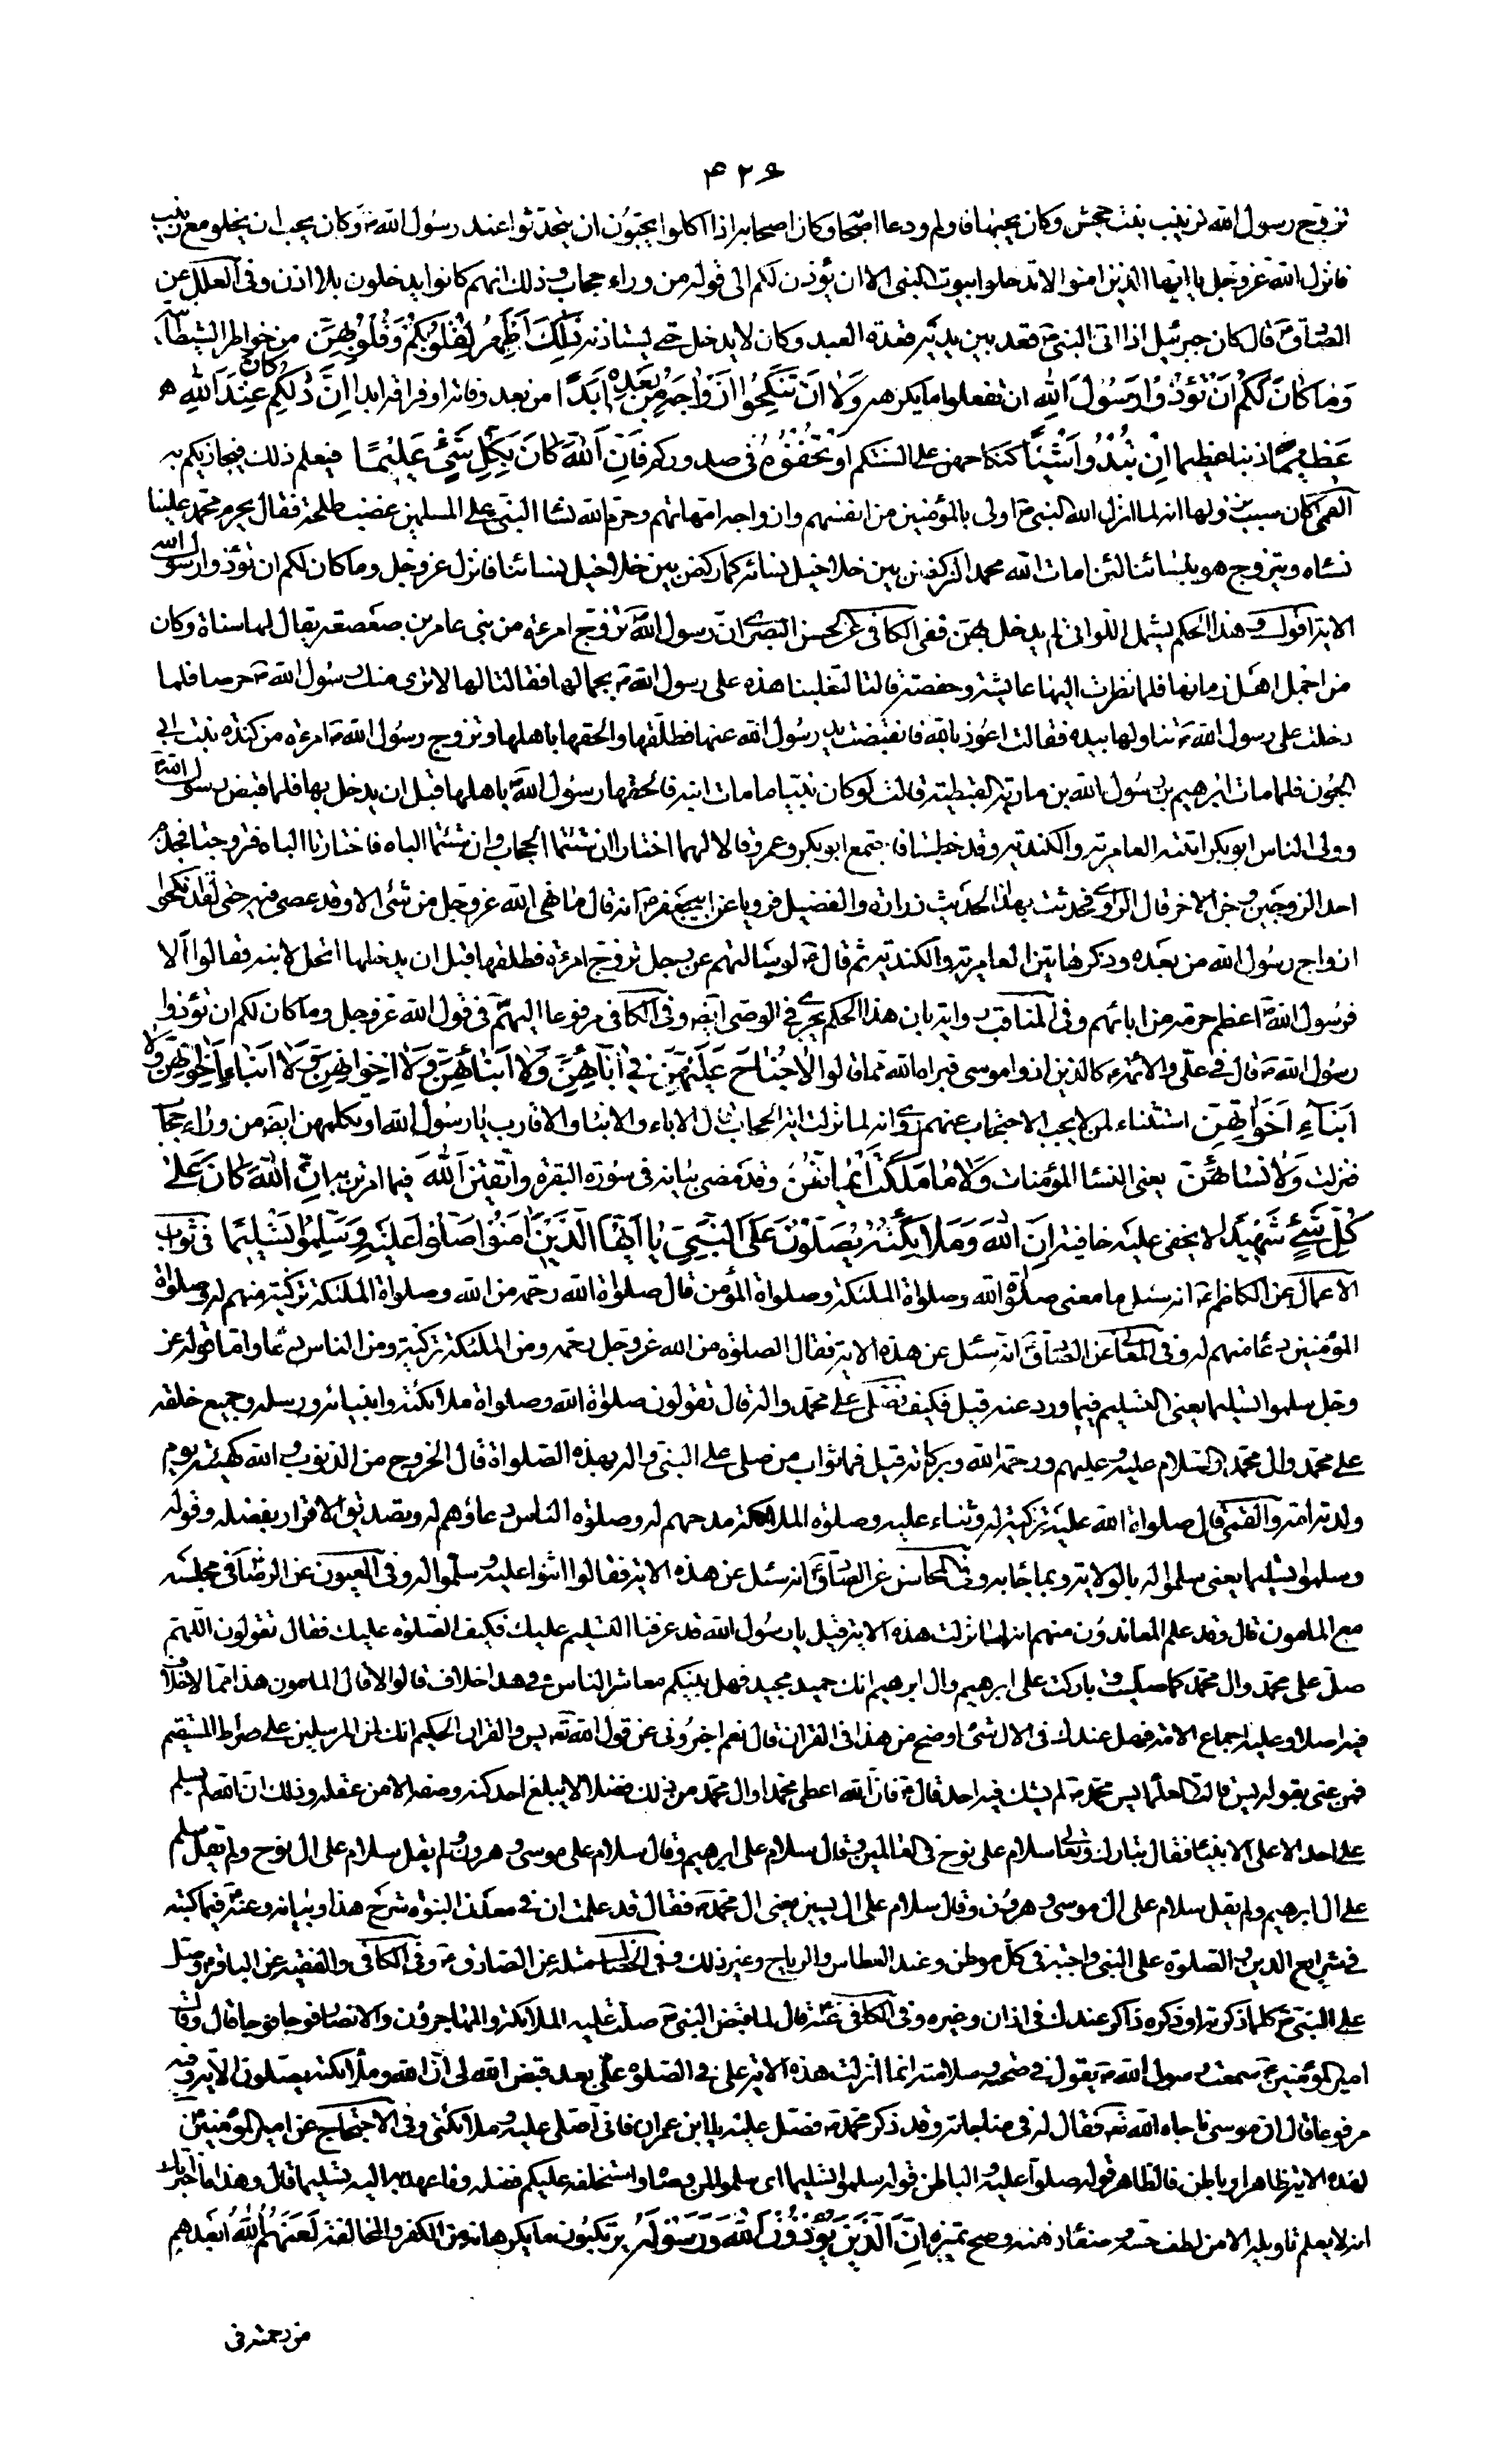 ۴۲۶
تزوج رسول الله ص زينب بنت جحش وكان يحبها فاولم ودعا اصحابه وكان اصحابه اذا اكلوا يحبون ان يتحدثوا عند رسول الله ص وكان يحب ان يخلو مع زينب
فانزل الله عز وجل يا ايها الذين امنوا لا تدخلوا بيوت النبي الا ان يؤذن لكم الى قوله من وراء حجاب وذلك انهم كانوا يدخلون بلا اذن وفى العلل عن
الصادق ع قال كان جبرئيل اذا اتى النبي ص قعد بين يديه قعدة العبد وكان لا يدخل حتى يستاذنه ذٰلِكُمْ اَطْهَرُ لِقُلُوبِكُمْ وَقُلُوبِهِنَّ من خواطر الشيطان
وَمَا كَانَ لَكُمْ اَنْ تُؤْذُوا رَسُولَ اللهِ ان تفعلوا ما يكرهه وَلَا اَنْ تَنْكِحُوا اَزْوَاجَهُ مِنْ بَعْدِهِ اَبَدًا من بعد وفاته او فراقه ابدا اِنَّ ذٰلِكُمْ كَانَ عِنْدَ اللهِ
عَظِيمًا ذنبا عظيما اِنْ تُبْدُوا شَيْئًا كنكاحهن على السنتكم اَوْ تُخْفُوهُ فى صدوركم فَاِنَّ اللهَ كَانَ بِكُلِّ شَيْءٍ عَلِيمًا فيعلم ذلك فيجازيكم به
القمى كان سبب نزولها انه لما انزل الله النبي ص اولى بالمؤمنين من انفسهم وازواجه امهاتهم وحرم الله نساء النبي على المسلمين غضب طلحة فقال يحرم محمد علينا
نساءه ويتزوج هو بنسائنا لئن امات الله محمدا لنركضن بين خلاخيل نسائه كما ركض بين خلاخيل نسائنا فانزل عز وجل وما كان لكم ان تؤذوا رسول الله
الاية اقول وهذا الحكم يشمل اللواتى لم يدخل بهن ففى الكافى عن الحسن البصرى ان رسول الله ص تزوج امرءة من بنى عامر بن صعصعة يقال لها سناة وكان
من اجمل اهل زمانها فلما نظرت اليها عايشة وحفصة قالتا لتغلبنا هذه على رسول الله ص بجمالها فقالتا لها لا يرى منك رسول الله ص حرصا فلما
دخلت على رسول الله ص تناولها بيده فقالت اعوذ بالله فانقبضت يد رسول الله عنها فطلقها والحقها باهلها وتزوج رسول الله ص امرءة من كندة بنت ابى
الجون فلما مات ابرهيم بن رسول الله بن مارية القبطية قالت لو كان نبيا ما مات ابنه فالحقها رسول الله ص باهلها قبل ان يدخل بها فلما قبض رسول الله ص
وولى الناس ابو بكر اتته العامرية والكندية وقد خطبتا فاجتمع ابو بكر وعمر وقالا لهما اختارا ان شئتما الحجاب وان شئتما الباه فاختارتا الباه فتزوجتا فجذم
احد الزوجين وجن الاخر قال الراوى فحدثت بهذا الحديث زرارة والفضيل فرويا عن ابى جعفر ع انه قال ما نهى الله عز وجل من شئ الا وقد عصى فيه حتى لقد نكحوا
ازواج رسول الله من بعده وذكر هاتين العامرية والكندية ثم قال ع لو سئالتهم عن رجل تزوج امرءة فطلقها قبل ان يدخلها اتحل لابنه فقالوا لا
فرسول الله ص اعظم حرمة من ابائهم وفى المناقب رواية بان هذا الحكم يجرى فى الوصى ايضا وفى الكافى مرفوعا اليهم ع فى قول الله عز وجل وما كان لكم ان تؤذوا
رسول الله ص قال فى على والائمة ع كالذين اذوا موسى فبراه الله مما قالوا لَا جُنَاحَ عَلَيْهِنَّ فِي اٰبَائِهِنَّ وَلَا اَبْنَائِهِنَّ وَلَا اِخْوَانِهِنَّ وَلَا اَبْنَاءِ اِخْوَانِهِنَّ وَلَا
اَبْنَاءِ اَخَوَاتِهِنَّ استثناء لمن لا يجب الاحتجاب عنهم روى انه لما نزلت اية الحجاب قال الاباء والابناء والاقارب يا رسول الله او نكلمهن ايضا من وراء حجاب
فنزلت وَلَا نِسَائِهِنَّ يعنى النساء المؤمنات وَلَا مَا مَلَكَتْ اَيْمَانُهُنَّ وقد مضى بيانه فى سورة البقرة وَاتَّقِينَ اللهَ فيما امرتن به اِنَّ اللهَ كَانَ عَلٰى
كُلِّ شَيْءٍ شَهِيدًا لا يخفى عليه خافية اِنَّ اللهَ وَمَلَائِكَتَهُ يُصَلُّونَ عَلَى النَّبِيِّ يَا اَيُّهَا الَّذِينَ اٰمَنُوا صَلُّوا عَلَيْهِ وَسَلِّمُوا تَسْلِيمًا فى ثواب
الاعمال عن الكاظم ع انه سئل ما معنى صلوة الله وصلواة الملئكة وصلواة المؤمن قال صلواة الله رحمة من الله وصلواة الملئكة تزكية منهم له وصلواة
المؤمنين دعاء منهم له وفى المعانى عن الصادق ع انه سئل عن هذه الاية فقال الصلوة من الله عز وجل رحمة ومن الملئكة تزكية ومن الناس دعاء واما قوله عز
وجل سلموا تسليما يعنى التسليم فيما ورد عنه قيل فكيف نصلى على محمد واله قال تقولون صلوة الله وصلواة ملائكته وانبيائه ورسله وجميع خلقه
على محمد وال محمد والسلام عليه وعليهم ورحمة الله وبركاته قيل فما ثواب من صلى على النبي واله بهذه الصلواة قال الخروج من الذنوب والله كهيئة يوم
ولدته امه والقمى قال صلواة الله عليه تزكية له وثناء عليه وصلوة الملائكة مدحهم له وصلوة الناس دعاؤهم له وتصديق الاقرار بفضله وقوله
وسلموا تسليما يعنى سلموا له بالولاية وبما جاء به وفى المحاسن عن الصادق ع انه سئل عن هذه الاية فقالوا اثنوا عليه وسلموا له وفى العيون عن الرضا ع فى مجلسه
مع المامون قال وقد علم المعاندون منهم انه لما نزلت هذه الاية قيل يا رسول الله قد عرفنا التسليم عليك فكيف الصلوة عليك فقال تقولون اللهم
صل على محمد وال محمد كما صليت وباركت على ابرهيم وال ابرهيم انك حميد مجيد فهل بينكم معاشر الناس فى هذا خلاف قالوا لا قال المامون هذا مما لا خلاف
فيه اصلا وعليه اجماع الامة فهل عندك فى الال شئ اوضح من هذا فى القران قال نعم اخبرونى عن قول الله تع يس والقران الحكيم انك لمن المرسلين على صراط مستقيم
فمن عنى بقوله يس قالت العلماء يس محمد ص لم يشك فيه احد قال ع فان الله اعطى محمدا وال محمد من ذلك فضلا لا يبلغ احد كنه وصفه الا من عقله وذلك ان الله لم يسلم
على احد الا على الانبياء فقال تبارك وتعالى سلام على نوح فى العالمين وقال سلام على ابرهيم وقال سلام على موسى وهرون ولم يقل سلام على ال نوح ولم يقل سلام
على ال ابرهيم ولم يقل سلام على ال موسى وهرون وقال سلام على ال يسين يعنى ال محمد ص فقال قد علمت ان فى معدن النبوة شرح هذا وبيانه وعنه ع فيما كتبه
فى شرايع الدين والصلوة على النبي واجبة فى كل موطن وعند العطاس والرياح وغير ذلك وفى الخصال مثله عن الصادق ع وفى الكافى والفقيه عن الباقر ع وصل
على النبي ص كلما ذكرته او ذكره ذاكر عندك فى اذان وغيره وفى الكافى عنه ع قال لما قبض النبي ص صلت عليه الملائكة والمهاجرون والانصار فوجا فوجا قال وقال
امير المؤمنين ع سمعت رسول الله ص يقول فى صحته وسلامته انما انزلت هذه الاية على فى الصلوة على بعد قبض الله لى ان الله وملائكته يصلون الاية وفيه
مرفوعا قال ان موسى ناجاه الله تع فقال له فى مناجاته وقد ذكر محمد ص فصل عليه يا ابن عمران فانى اصلى عليه وملائكتى وفى الاحتجاج عن امير المؤمنين ع
لهذه الاية ظاهر وباطن فالظاهر قوله صلوا عليه والباطن قوله سلموا تسليما اى سلموا لمن وصاه واستخلفه عليكم فضله وما عهد به اليه تسليما قال وهذا ما اخبرتك
انه لا يعلم تاويله الا من لطف حسه وصفا ذهنه وصح تميزه اِنَّ الَّذِينَ يُؤْذُونَ اللهَ وَرَسُولَهُ يرتكبون ما يكرهانه من الكفر والمخالفة لَعَنَهُمُ اللهُ ابعدهم
من رحمته فى